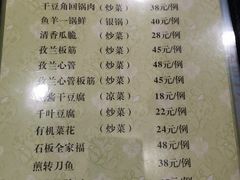 干豆角回锅肉（炒菜） 38元/例
鱼羊一锅鲜（银锅） 40元/例
清香瓜脆（炒菜） 28元/例
孜兰板筋（炒菜） 45元/例
孜兰心管（炒菜） 48元/例
孜兰心管板筋（炒菜） 45元/例
酱干豆腐（凉菜） 18元/例
千叶豆腐（炒菜） 22元/例
有机菜花（炒菜） 24元/例
石板全家福 48元/例
煎转刀鱼 38元/例